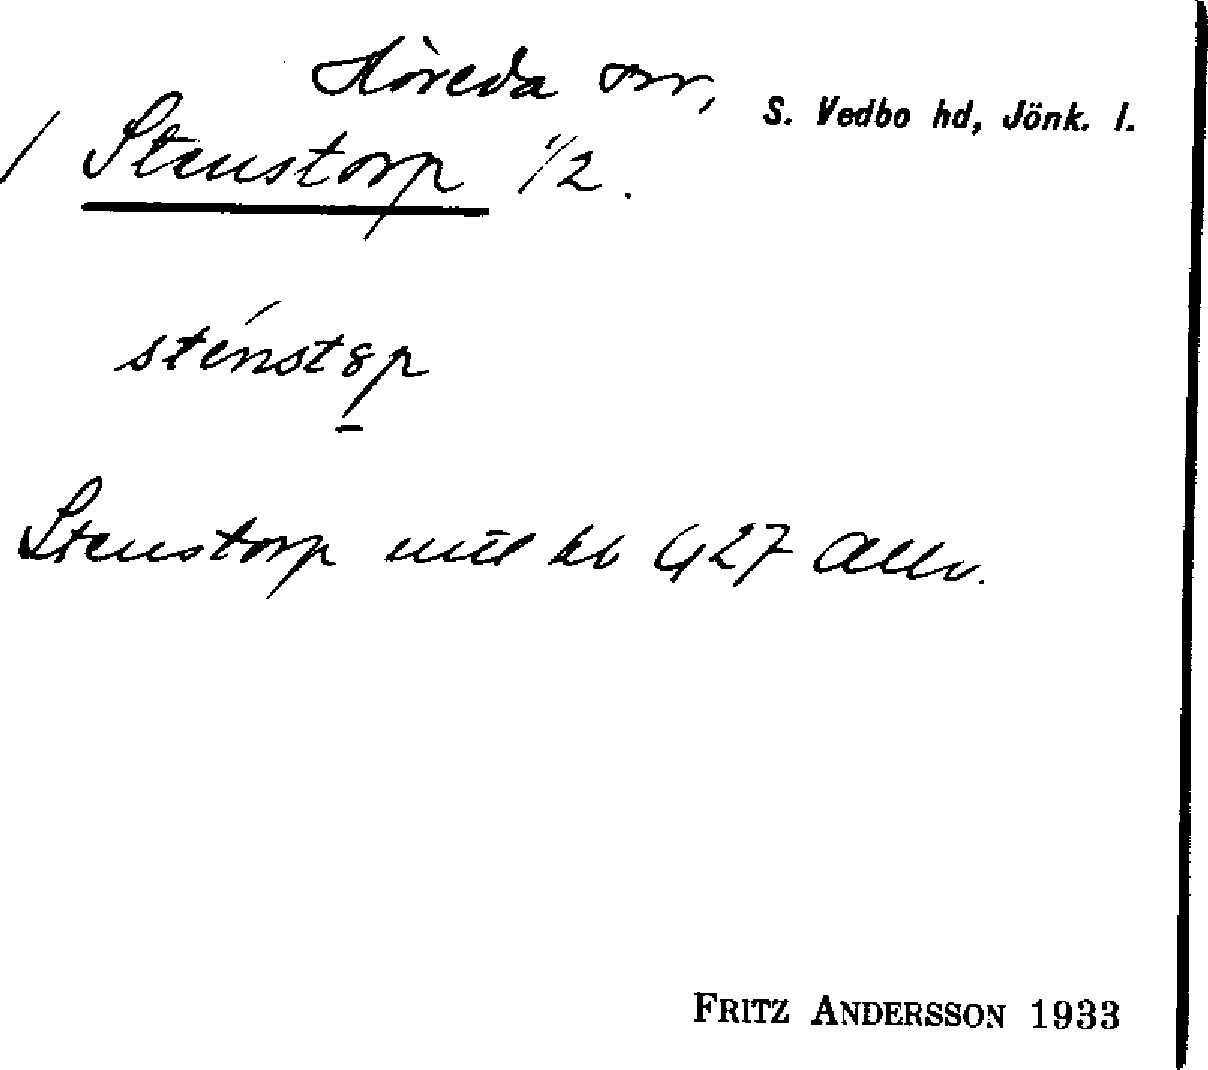 Höreda sn,
S. Vedbo hd, Jönk. l.
/ Stenstorp 1/2.
sténstəp
Stenstorp
427
FRITZ ANDERSSON 1933